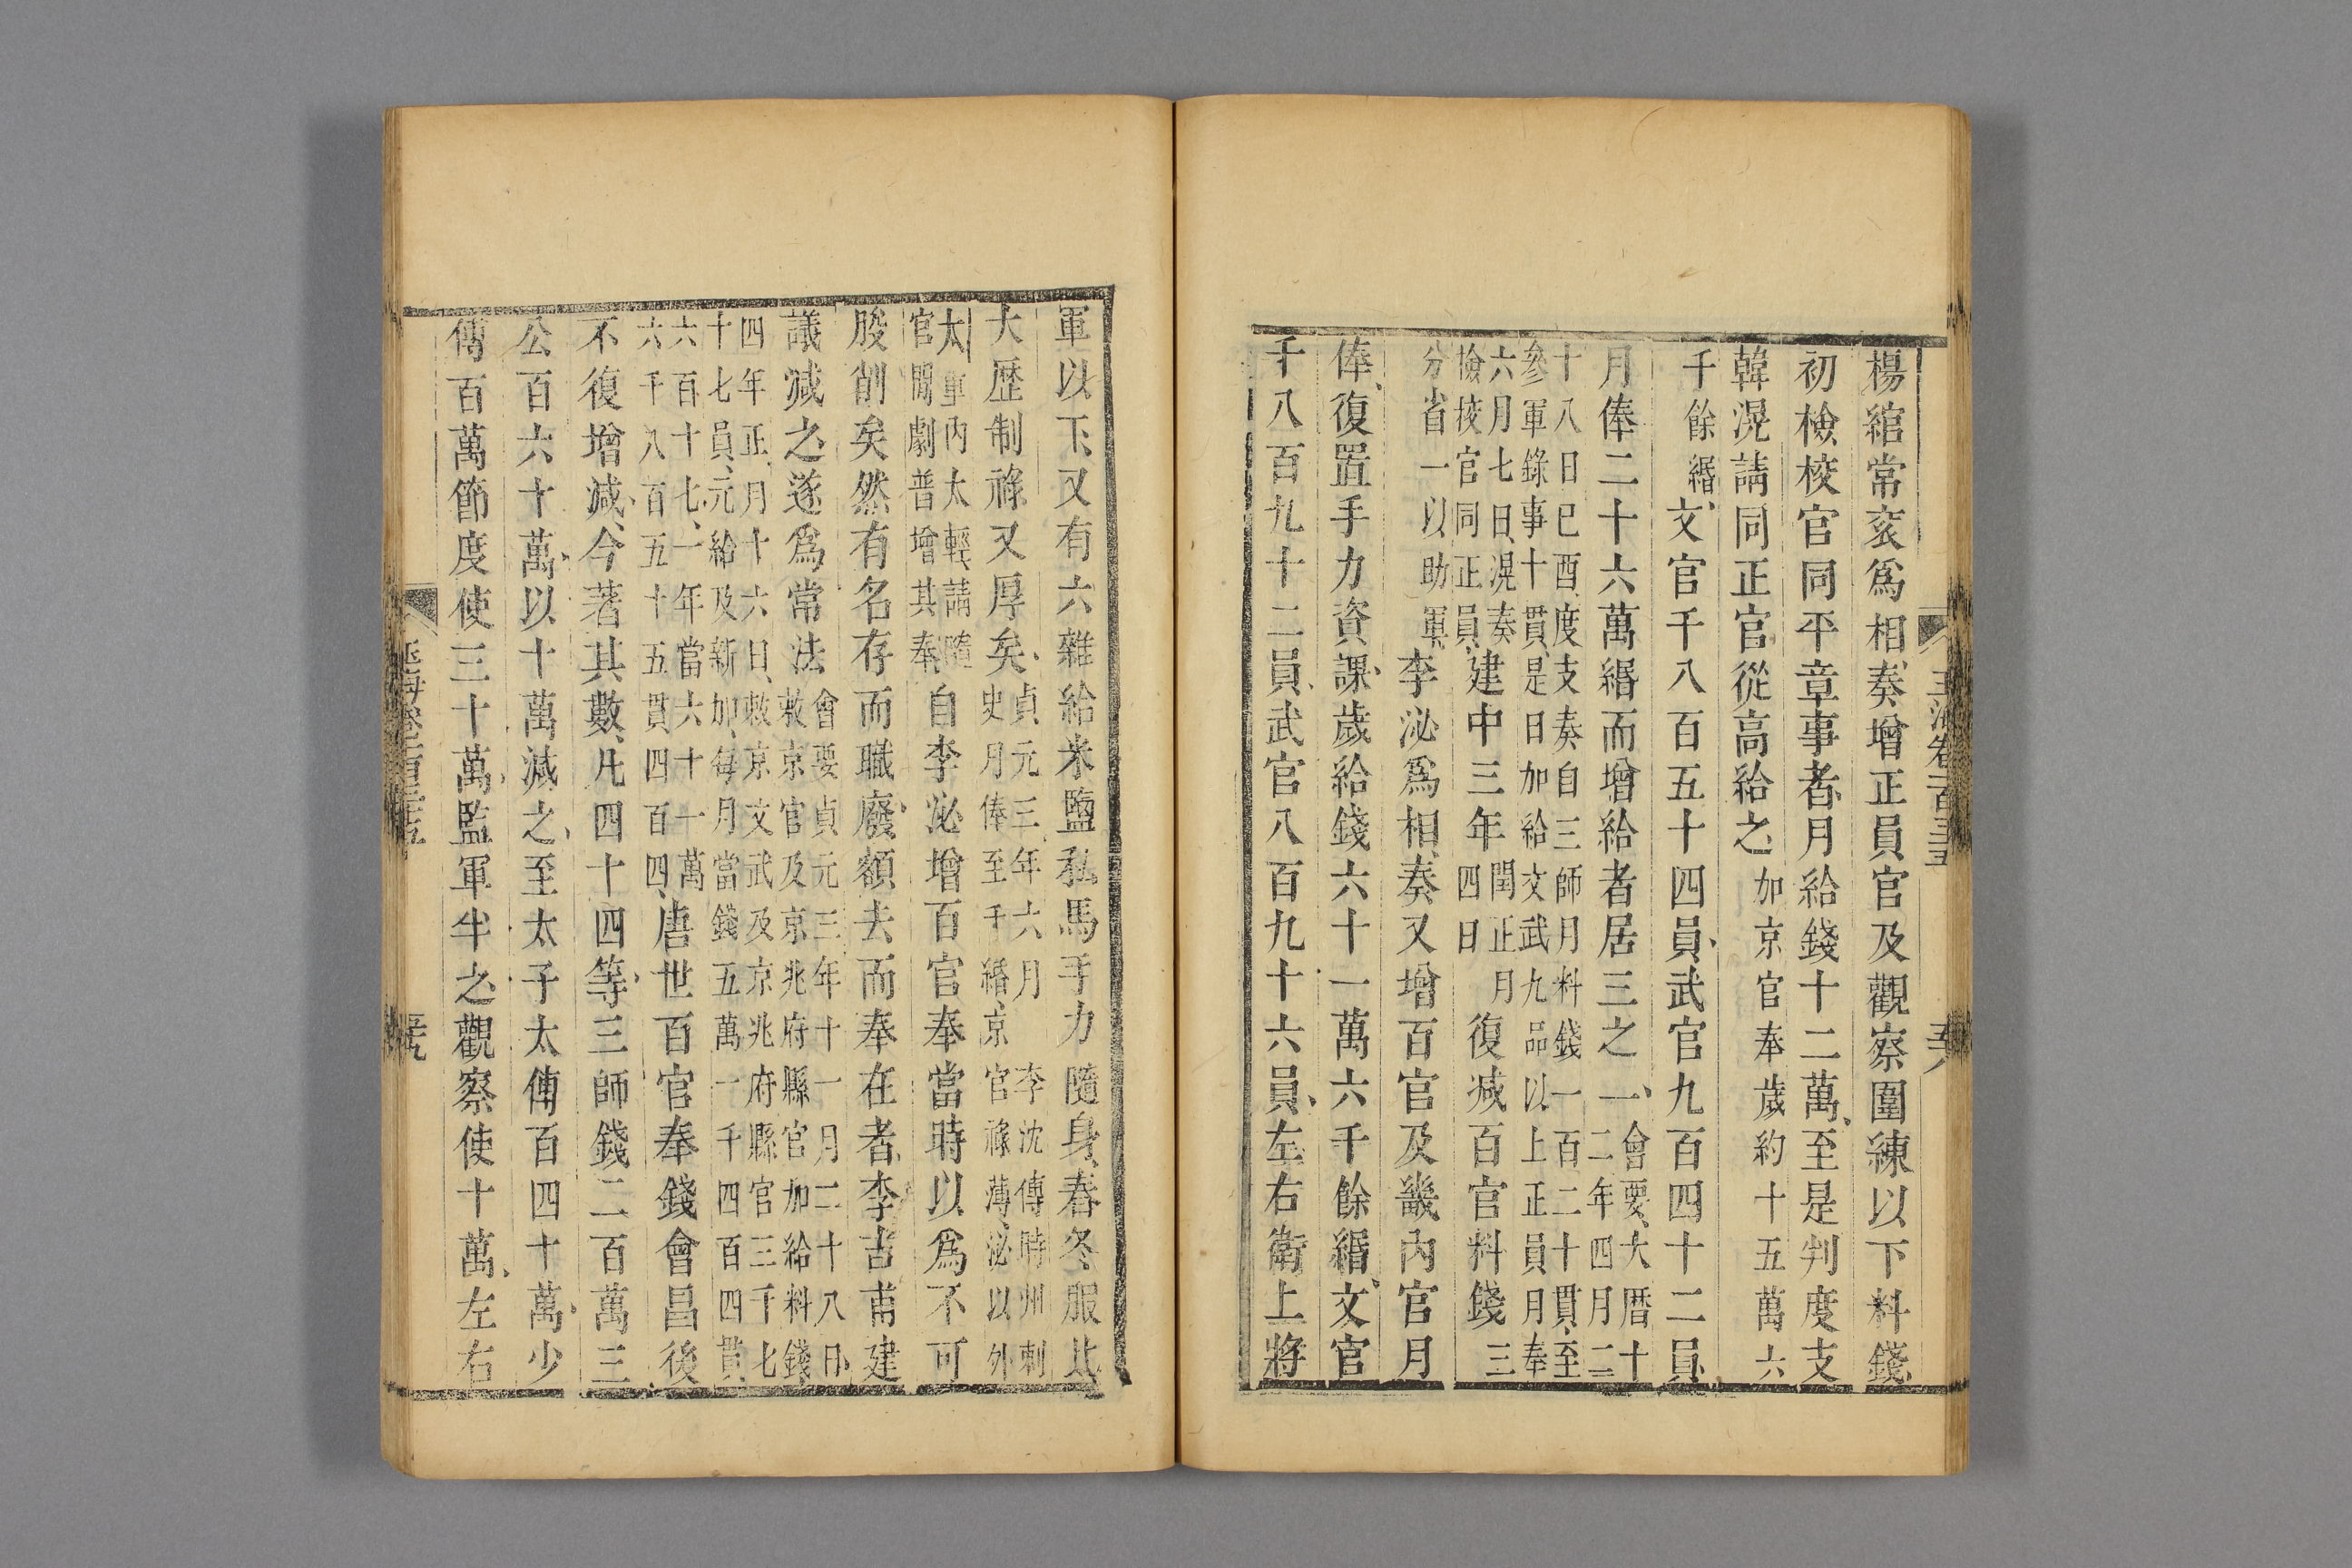 楊綰常袞爲相奏增正員官及觀察團練以下料錢
初檢校官同平章事者月給錢十二萬至是判度支
韓滉請同正官從高給之加京官奉歲約十五萬六
千餘緡文官千八百五十四員武官九百四十二員
月俸二十六萬緡而增給者居三之一會要大曆十
二年四月二
十八日已酉度支奏自三師月料錢一百二十貫至
參軍錄事十貫是日加給文武九品以上正員月奉
六月七日滉奏
檢校官同正員建中三年閏正月
四日復減百官料錢三
分省一以助軍李泌爲相奏又增百官及畿內官月
俸復置手力資課歲給錢六十一萬六千餘緡文官
千八百九十二員武官八百九十六員左右衛上將
軍以下又有六雜給米鹽私馬手力隨身春冬服此
大歷制祿又厚矣貞元三年六月李沈傳時州刺
史月俸至千緡京官祿薄泌以外
太重內太輕請隨
官閒劇普增其奉自李泌增百官奉當時以爲不可
朘削矣然有名存而職廢額去而奉在者李吉甫建
議減之遂爲常法會要貞元三年十一月二十八日
敕京官及京兆府縣官加給料錢
四年正月十六日敕京文武及京兆府縣官三千七
十七員元給及新加每月當錢五萬一千四百四貫
六百十七一年當六十一萬
六千八百五十五貫四百四唐世百官奉錢會昌後
不復增減今著其數凡四十四等三師錢二百萬三
公百六十萬以十萬減之至太子太傅百四十萬少
傅百萬節度使三十萬監軍半之觀察使十萬左右